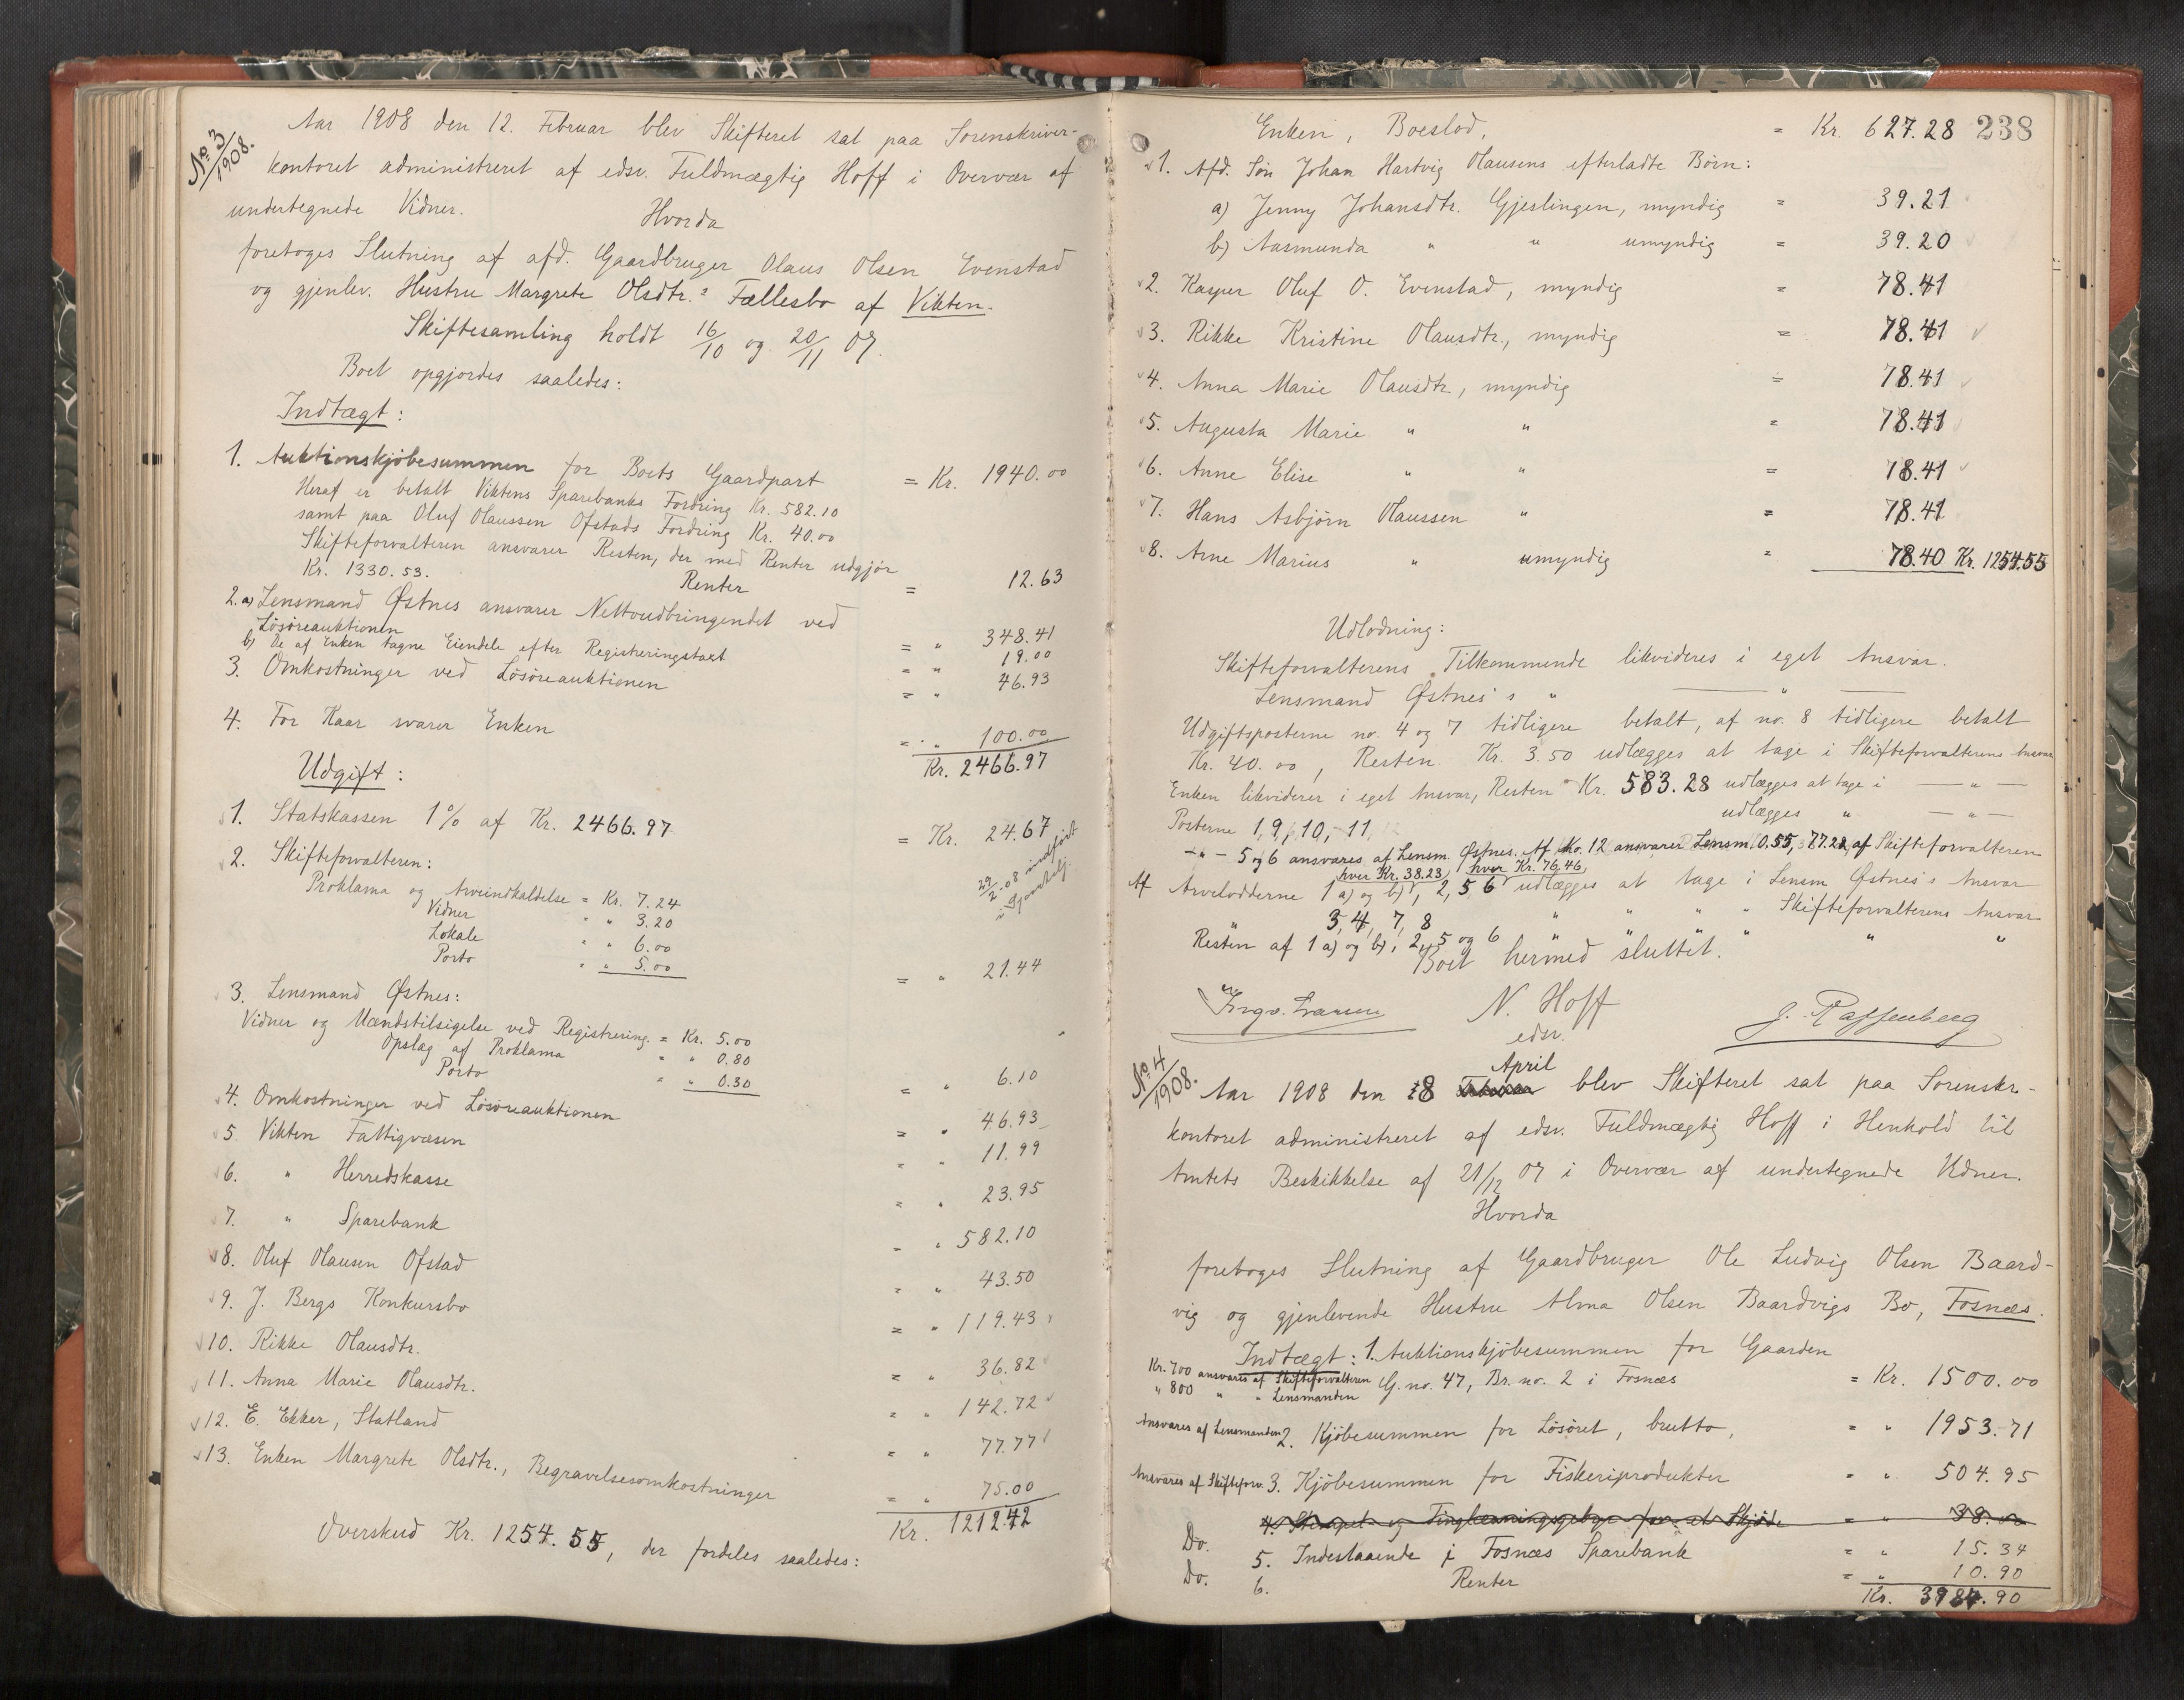 No. 3/1908.
Aar 1908 den 12. Februar blev Skifteret sat paa Sorenskriver-
kontoret administreret af edsv. Fuldmægtig Hoff i Overvær af
undertegnede Vidner.
Hvorda
foretoges Slutning af afd. Gaardbruger Olaus Olsen Evenstad
og gjenlev. Hustru Margrete Olsdtr.s Fællesbo af Vikten.
Skiftesamling holdt 16/10 og 20/11 07.
Boet opgjordes saaledes:
Indtægt:
1. Auktionskjøbesummen for Boets Gaardpart = Kr. 1940.00
Heraf er betalt Viktens Sparebanks Fordring Kr. 582.10
samt paa Oluf Olaussen Ofstads Fordring Kr. 40.00
Skifteforvalteren ansvarer Resten, der med Renter udgjør
Kr. 1330.53.
Renter = 12.63
2. a) Lensmand Østnes ansvarer Nettoudbringendet ved
Løsøreauktionen = " 348.41
b) De af Enken tagne Eiendele efter Registreringstaxt = " 19.00
3. Omkostninger ved Løsøreauktionen = " 46.93
4. For Kaar svarer Enken = " 100.00
Kr. 2466.97
Udgift:
1. Statskassen 1% af Kr. 2466.97 = Kr. 24.67
2. Skifteforvalteren:
29/2-08 indført i Gjenpartstj.
Proklama og Arveindkaldelse = Kr. 7.24
Vidner " " 3.20
Lokale " " 6.00
Porto " " 5.00
= " 21.44
3. Lensmand Østnes:
Vidner og Mændstilsigelse ved Registrering. = Kr. 5.00
Opslag af Proklama = " 0.80
Porto = " 0.30
= " 6.10
4. Omkostninger ved Løsøreauktionen = " 46.93
5. Vikten Fattigvæsen = " 11.99
6. " Herredskasse = " 23.95
7. " Sparebank = " 582.10
8. Oluf Olausen Ofstad = " 43.50
9. J. Bergs Konkursbo = " 119.43
10. Rikke Olausdtr. = " 36.82
11. Anna Marie Olausdtr. = " 142.72
12. E. Ekker, Statland = " 77.77
13. Enken Margrete Olsdtr., Begravelsesomkostninger = " 75.00
Kr. 1212.42
Overskud Kr. 1254.55, der fordeles saaledes:
238
Enken, Boeslod, = Kr. 627.28
1. Afd. Søn Johan Hartvig Olausens efterladte Børn:
a) Jenny Johansdtr. Gjeslingen, myndig = 39.21
b) Aasmunda " " umyndig = 39.20
2. Kasper Oluf O. Evenstad, myndig = 78.41
3. Rikke Kristine Olausdtr., myndig = 78.41
4. Anna Marie Olausdtr, myndig = 78.41
5. Augusta Marie " " = 78.41
6. Anne Elise " " = 78.41
7. Hans Asbjørn Olaussen " = 78.41
8. Arne Marius " umyndig = 78.40 Kr. 1254.55
Udlodning:
Skifteforvalterens Tilkommende likvideres i eget Ansvar.
Lensmand Østnes's " — " —
Udgiftsposterne no. 4 og 7 tidligere betalt, af no. 8 tidligere betalt
Kr. 40.00, Resten Kr. 3.50 udlægges at tage i Skifteforvalterens Ansvar
Enken likviderer i eget Ansvar, Resten Kr. 583.28 udlægges at tage i — " —
Posterne 1, 9, 10, 11, udlægges " — " —
— " — 5 og 6 ansvares af Lensm. Østnes. Af No. 12 ansvarer Lensm. 0.55, 77.22 af Skifteforvalteren
hver Kr. 38.23, hver Kr. 76,46
Af Arvelodderne 1 a) og b), 2, 5 6 udlægges at tage i Lensm Østnes's Ansvar
" 3, 4, 7, 8 " " " " Skifteforvalterens Ansvar
Resten af 1 a) og b), 2, 5 og 6 " " " " "
Boet hermed sluttet.
N. Hoff
edsv.
No. 4/1908.
Aar 1908 den 28 April blev Skifteret sat paa Sorenskr-
kontoret administreret af edsv. Fuldmægtig Hoff i Henhold til
Amtets Beskikkelse af 21/12 07 i Overvær af undertegnede Vidner.
Hvorda
foretoges Slutning af Gaardbruger Ole Ludvig Olsen Baard-
vig og gjenlevende Hustru Alma Olsen Baardvigs Bo, Fosnæs.
Indtægt: 1. Auktionskjøbesummen for Gaarden
Kr. 700 ansvares af Skifteforvalteren G. no. 47, Br. no. 2 i Fosnæs = Kr. 1500.00
" 800 " " Lensmanden
Ansvares af Lensmanden 2. Kjøbesummen for Løsøret, brutto, = " 1953.71
Ansvares af Skifteforv. 3. Kjøbesummen for Fiskeriprodukter = " 504.95
4. Stempel og Tinglæsningsgebyr for et Skjøde = " 38.00
Do. 5. Indestaaende i Fosnæs Sparebank = " 15.34
Do. 6. Renter = " 10.90
Kr. 3984.90